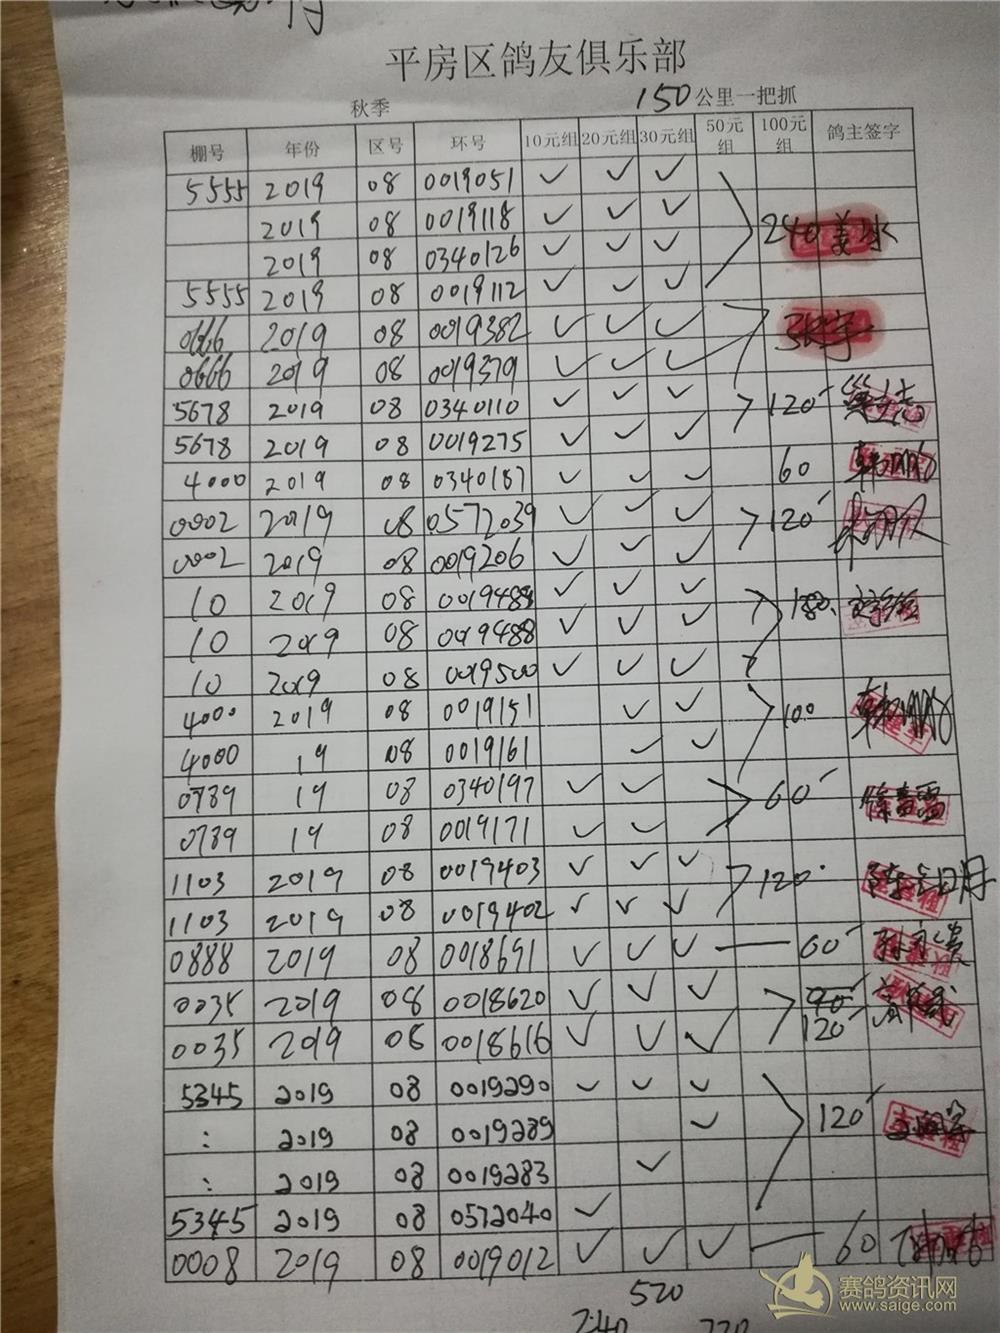 平房区鸽友俱乐部
秋季 150公里一把抓
棚号 年份 区号 环号 10元组 20元组 30元组 50元组 100元组 鸽主签字
5555 2019 08 0019051 ✓ ✓ ✓
2019 08 0019118 ✓ ✓ ✓ 240
2019 08 0340126 ✓ ✓ ✓
5555 2019 08 0019112 ✓ ✓ ✓
0666 2019 08 0019382 ✓ ✓ ✓
0666 2019 08 0019379 ✓ ✓ ✓
5678 2019 08 0340110 ✓ ✓ ✓ 120
5678 2019 08 0019275 ✓ ✓ ✓
4000 2019 08 0340187 ✓ ✓ ✓ 60
0002 2019 08 0572039 ✓ ✓ ✓ 120
0002 2019 08 0019206 ✓ ✓ ✓
10 2019 08 ✓ ✓ ✓ 180
10 2019 08 0019488 ✓ ✓ ✓
10 2019 08 0019500 ✓ ✓ ✓
4000 2019 08 0019151 ✓ ✓ 100
4000 19 08 0019161 ✓ ✓
0789 19 08 0340197 ✓ ✓ 60
0789 19 08 0019171 ✓ ✓
1103 2019 08 0019403 ✓ ✓ ✓ 120
1103 2019 08 0019402 ✓ ✓ ✓
0888 2019 08 0018691 ✓ ✓ ✓ 60
0035 2019 08 0018620 ✓ ✓ ✓ 90
0035 2019 08 0018616 ✓ ✓ ✓ 120
5345 2019 08 0019290 ✓ ✓ ✓
: 2019 08 0019289 ✓ 120
: 2019 08 0019283 ✓
5345 2019 08 0572040 ✓
0008 2019 08 0019012 ✓ ✓ ✓ 60
520
240 720
赛鸽资讯网
www.saige.com